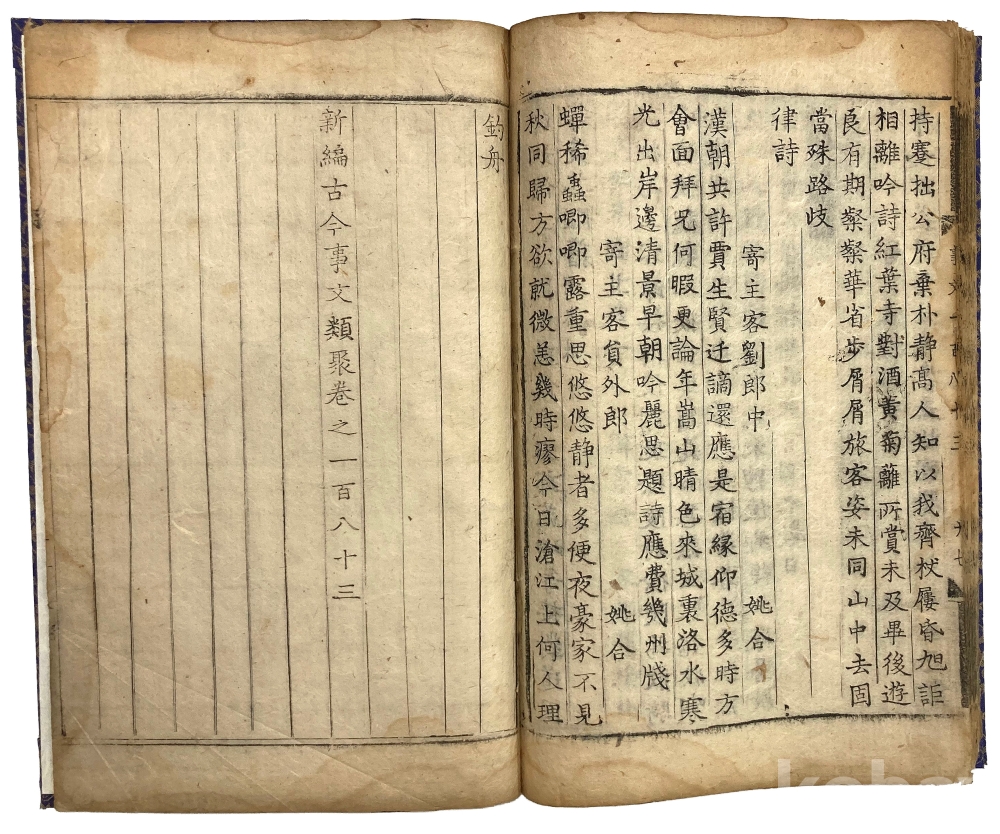 持蹇拙公府棄朴静高人知以我齊杖屨昏旭詎
相離吟詩紅葉寺對酒黄菊蘺所賞未及畢後遊
良有期粲粲華省步屑屑旅客姿未同山中去固
當殊路歧
律詩
寄主客劉郎中 姚合
漢朝共許賈生賢迁謫還應是宿緣仰德多時方
會面拜兄何暇更論年嵩山晴色來城裏洛水寒
光出岸邊清景早朝吟麗思題詩應費幾州牋
寄主客貟外郎 姚合
蟬稀蟲唧唧露重思悠悠静者多便夜豪家不見
秋同歸方欲就微恙幾時瘳今日滄江上何人理
釣舟
新編古今事文類聚卷之一百八十三